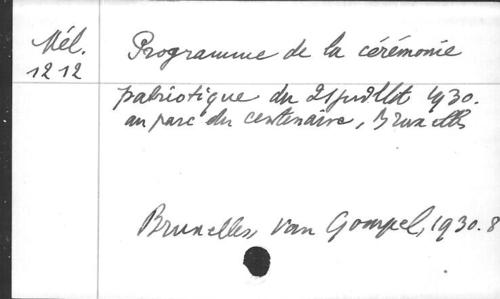 Mél.
1212
Programme de la cérémonie
patriotique du 21 juillet 1930.
au parc du centenaire, Bruxelles
Bruxelles, van Gompel, 1930. 8